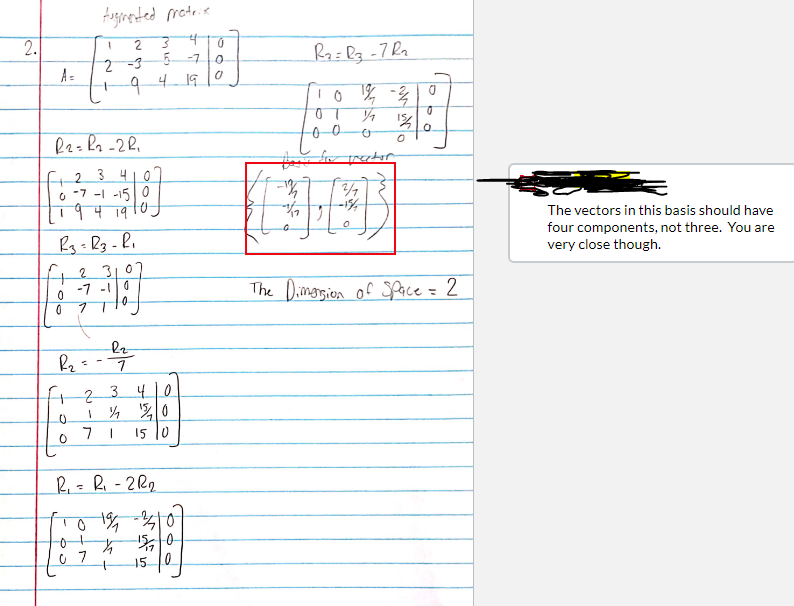 Augmented matrix
2.
A =
1 2 3 4 | 0
2 -3 5 -7 | 0
1 9 4 19 | 0
R2 = R2 - 2R1
1 2 3 4 | 0
0 -7 -1 -15 | 0
1 9 4 19 | 0
R3 = R3 - R1
1 2 3 | 0
0 -7 -1 | 0
0 7 1 | 0
R2 = - R2/7
1 2 3 4 | 0
0 1 1/7 15/7 | 0
0 7 1 15 | 0
R1 = R1 - 2R2
1 0 19/7 -2/7 | 0
0 1 1/7 15/17 | 0
0 7 1 15 | 0
R3 = R3 - 7R2
1 0 19/7 -2/7 | 0
0 1 1/7 15/7 | 0
0 0 0 0 | 0
Basis for vector
{ [ -19/7 ] , [ 2/7 ] }
-1/17 -15/7
0 0
The Dimension of Space = 2
The vectors in this basis should have
four components, not three. You are
very close though.